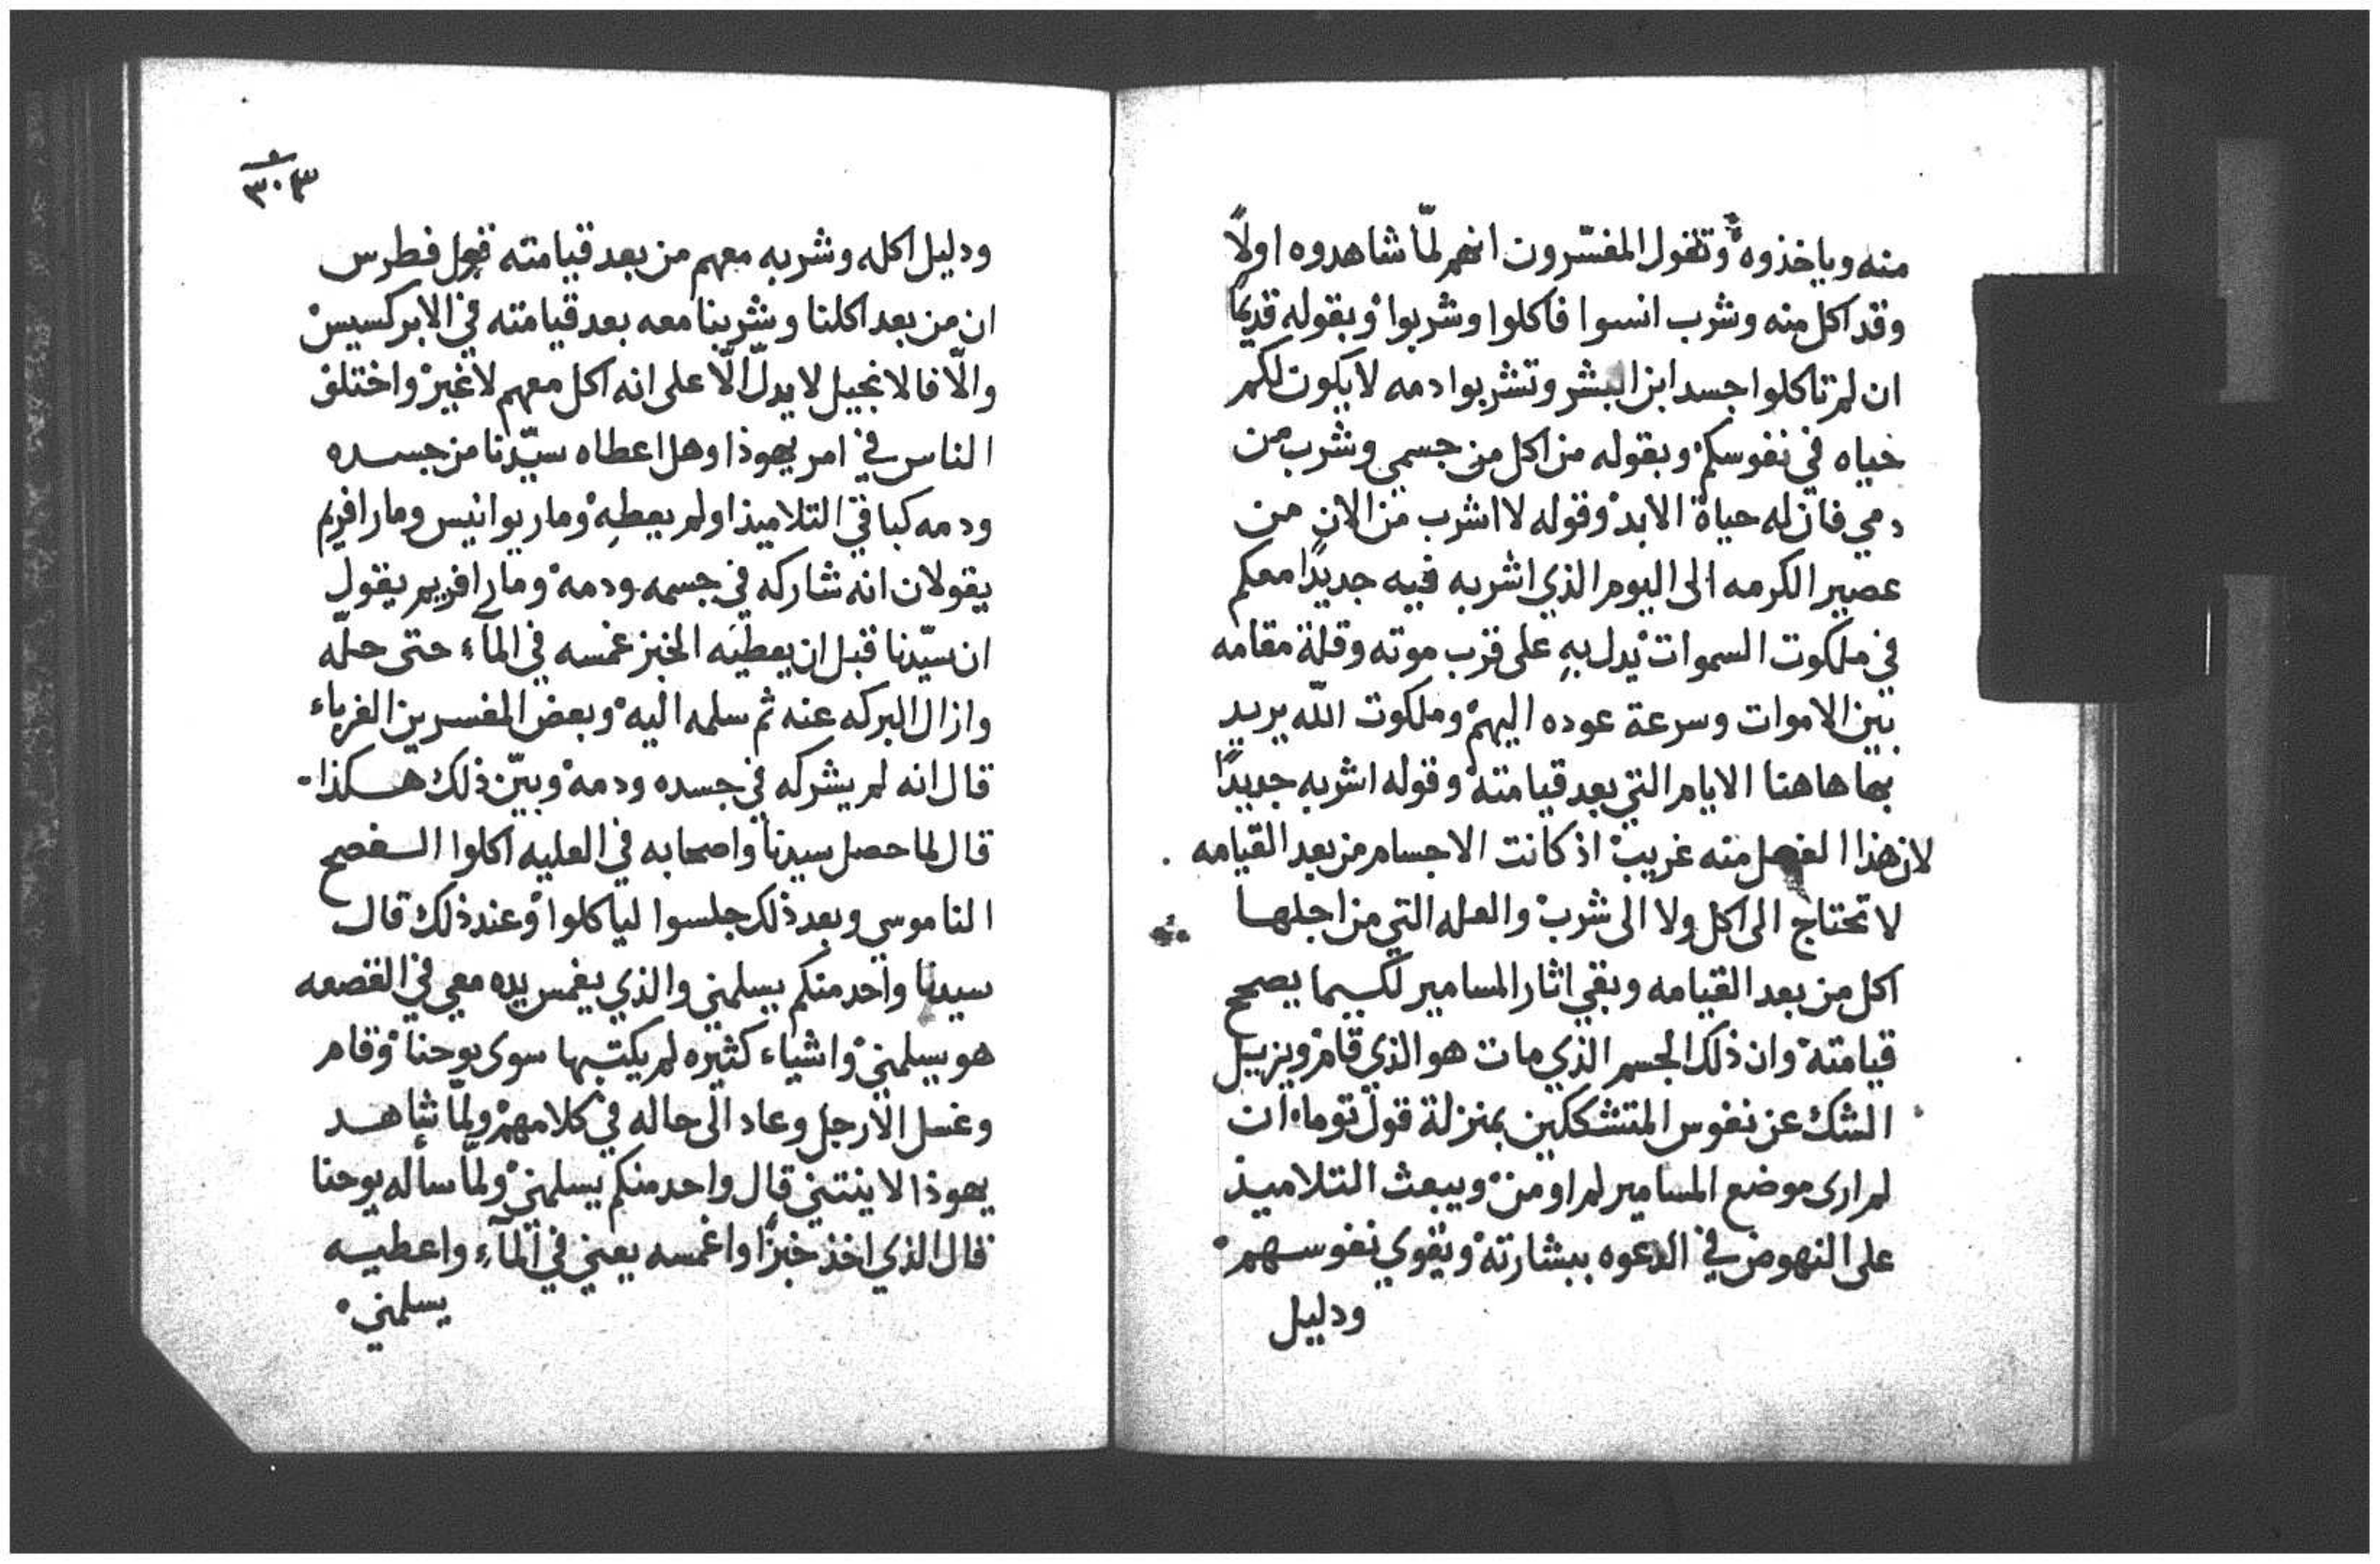 منه وياخذوه وتقول المفسّرون انهم لمّا شاهدوه اولًا
وقد اكل منه وشرب انسوا فاكلوا وشربوا وبقوله قديمًا
ان لم تاكلوا جسد ابن البشر وتشربوا دمه لا يكون لكم
حياه في نفوسكم وبقوله من اكل من جسمي وشرب من
دمي فان له حياة الابد وقوله لا اشرب من الان من
عصير الكرمه الى اليوم الذي اشربه فيه جديدًا معكم
في ملكوت السموات يدل بهِ على قرب موته وقلة مقامه
بين الاموات وسرعة عوده اليهم وملكوت اللّه يريد
بها هاهنا الايام التي بعد قيامته وقوله اشربه جديدًا
لان هذا الفعل منه غريب اذ كانت الاجسام من بعد القيامه
لا تحتاج الى اكل ولا الى شرب والعله التي من اجلها
اكل من بعد القيامه وبقي اثار المسامير لكيما يصحح
قيامته وان ذلك الجسم الذي مات هو الذي قام ويزيل
الشك عن نفوس المتشككين بمنزلة قول توما ان
لم ارى موضع المسامير لم اومن ويبعث التلاميذ
على النهوض في الدعوه ببشارته ويقوي نفوسهم
ودليل
٣٠٣
ودليل اكله وشربه معهم من بعد قيامته قول فطرس
ان من بعد اكلنا وشربنا معه بعد قيامته في الابركسيس
والّا فالانجيل لا يدلّ الّا على انه اكل معهم لا غير واختلف
الناس في امر يهوذا وهل اعطاه سيّدنا من جسده
ودمه كباقي التلاميذ او لم يعطهِ وماريوانيس ومار افريم
يقولان انه شاركه في جسمه ودمه ومار افريم يقول
ان سيّدنا قبل ان يعطيَه الخبز غمسه في المآء حتى حلّه
وازال البركه عنه ثم سلمه اليه وبعض المفسرين الغرباء
قال انه لم يشركه في جسده ودمه وبيّن ذلك هكذا
قال لما حصل سيدنا واصحابه في العليه اكلوا السفصح
الناموسي وبعد ذلك جلسوا لياكلوا وعند ذلك قال
سيدنا واحد منكم يسلمني والذي يغمس يده معي في القصعه
هو يسلمني واشياء كثيره لم يكتبها سوى يوحنا وقام
وغسل الارجل وعاد الى حاله في كلامهم ولمّا شاهد
يهوذا لا ينتني قال واحد منكم يسلمني ولمّا سأله يوحنا
قال الذي اخذ خبزًا واغمسه يعني في المآءِ واعطيه
يسلمني